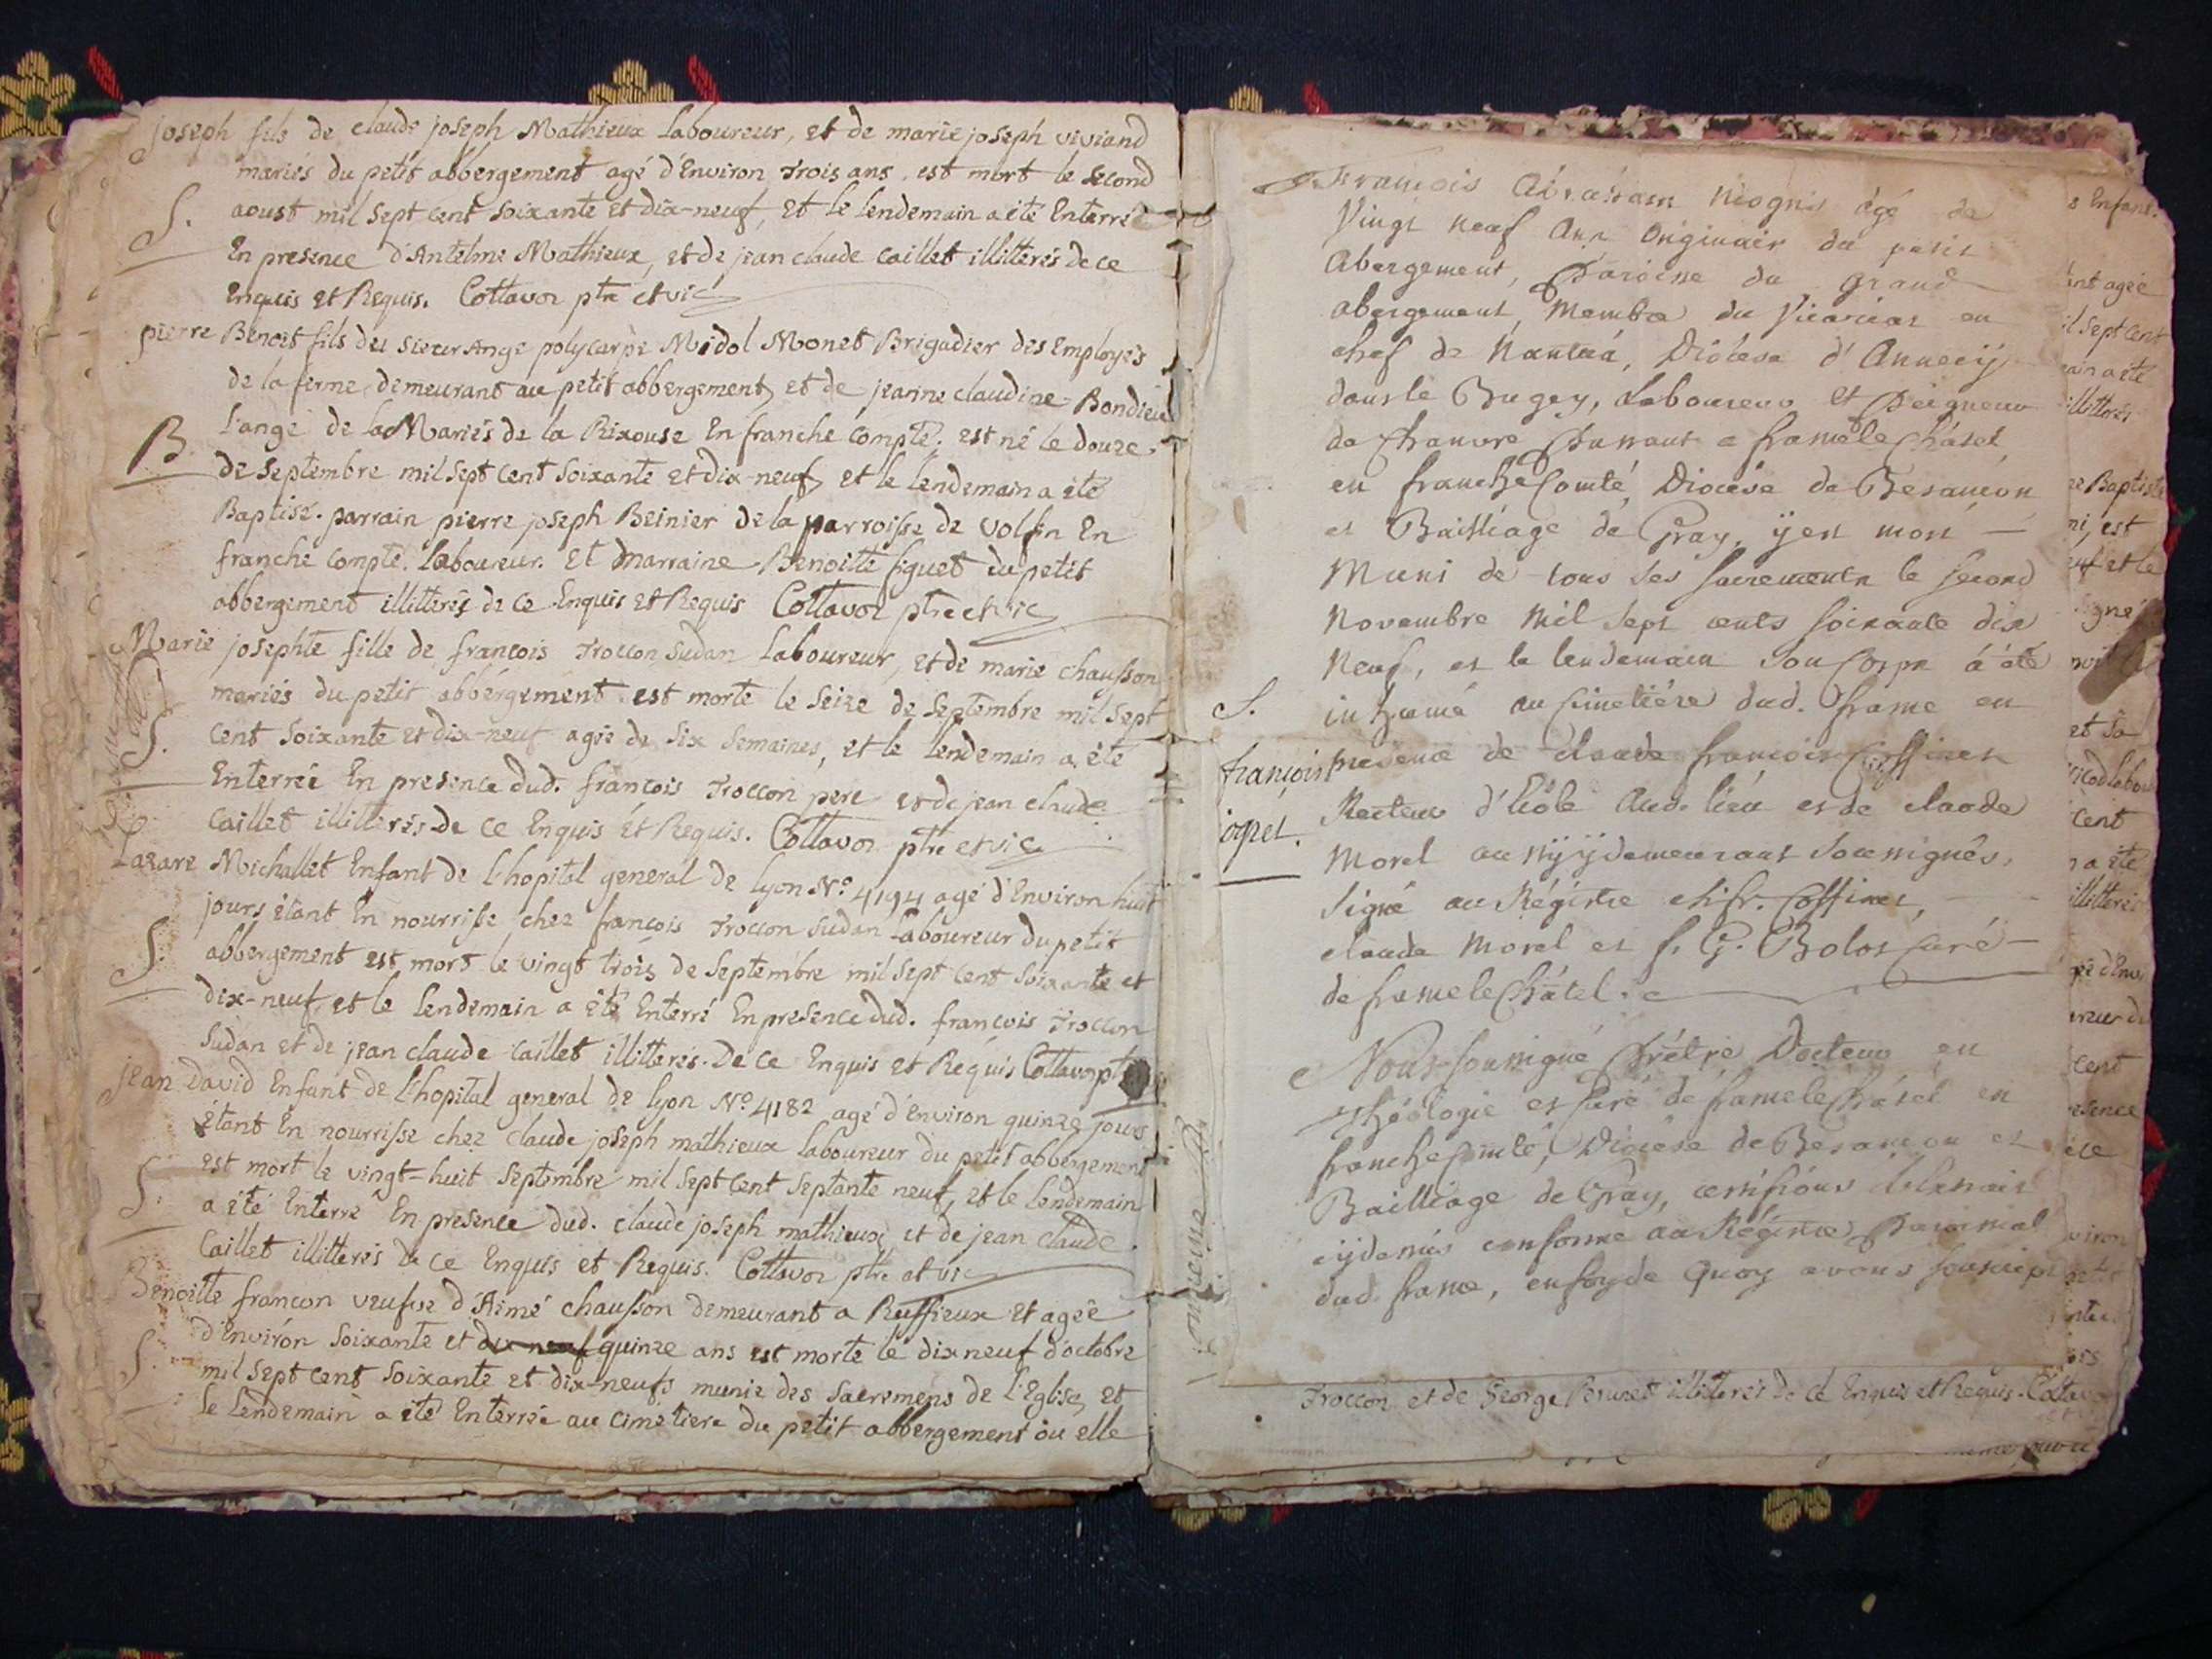 joseph fils de claude joseph Mathieux Laboureur, et de marie joseph viviand
mariés du petit abbergement agé d'Environ trois ans, est mort le second
aoust mil sept cent soixante et dix-neuf, et le lendemain a été Enterré
S.
En presence d'Antelme Mathieux, et de jean claude caillet illitterés de ce
Enquis et Requis. Cottavoz ptre et vic
pierre Benoit fils du sieur Ange polycarpe Midol Monet Brigadier des Employés
de la ferme demeurant au petit abbergement, et de jeanne claudine Bondieu
l'ange de la Mariés de la Rixouse En franche compte. est né le douze
B
de septembre mil sept cent soixante et dix-neuf, et le lendemain a été
Baptisé. parrain pierre joseph Reinier de la parroisse de volfin En
franche compte. laboureur. et marraine Benoitte figuet du petit
abbergement illitterés de ce Enquis et Requis Cottavoz ptre et vic
Marie josephte fille de francois Troccon Sudan Laboureur, et de marie chausson
mariés du petit abbérgement est morte le seize de septembre mil sept
S.
cent soixante et dix-neuf agée de six semaines, et le lendemain a été
Enterrée En presence dud. francois Troccon pere et de jean claude
caillet illitterés de ce Enquis et Requis. Cottavoz ptre et vic
Lazare Michallet Enfant de l'hopital general de lyon N.º 4194 agé d'Environ huit
jours étant En nourrisse chez francois Troccon Sudan Laboureur du petit
S.
abbergement est mort le vingt trois de septembre mil sept cent soixante et
dix-neuf et le lendemain a été Enterré En presence dud. francois Troccon
Sudan et de jean claude caillet illitterés. De ce Enquis et Requis Cottavoz ptre
jean David Enfant de l'hopital general de lyon N.º 4182 agé d'Environ quinze jours
étant En nourrisse chez claude joseph mathieux laboureur du petit abbergement
est mort le vingt-huit septembre mil sept cent septante neuf, et le lendemain
S.
a été Enterré En presence dud. claude joseph mathieux et de jean claude
caillet illitterés de ce Enquis et Requis. Cottavoz ptre et vic
Benoitte francon veufve d'Aimé chausson demeurant a Ruffieux et agée
d'Environ soixante et dix neuf quinze ans est morte le dix neuf d'octobre
S.
mil sept cent soixante et dix-neufs munie des sacremens de l'Eglise, et
le lendemain a été Enterrée au cimetiere du petit abbergement ou elle
françois Abraham agé de
Vingt neuf Ans Originair du petit
Abergement, Paroisse du grand
abergement, Membre du Vicariat en
chef de Nantua, Diócèse d'Annecÿ
dans le Bugey, Laboureur et Peigneur
de Chanvre Passant a frame le Châtel
en franche Comté, Diocèse de Besançon
et Bailliage de Gray, ÿ est mort
Muni de tous ses sacrements le second
Novembre Mil sept cents soixante dix
Neuf, et le lendemain son Corps á été
S.
inhumé au Cimetiére dud. frame en
françois
presence de claude françois Coffinet
Recteur d'Ecôle Aud. lieu et de claude
jogret.
Morel demeurant soussignés.
signé au Régistre cl. fr. Coffinet,
claude Morel et f. G. Bolot curé
de frame le Châtel.
Nous soussigné Prêtre Docteur en
théologie et Curé de frame le Châtel en
franche Comté, Diocèse de Besançon et
Bailliage de Gray, certifions l'extrait
cÿ dessus conforme au Régistre Paroissial
dud. frame, en foy de Quoy avons souscript
Troccon et de George Perunet illitterés de ce Enquis et Requis. Cottavoz